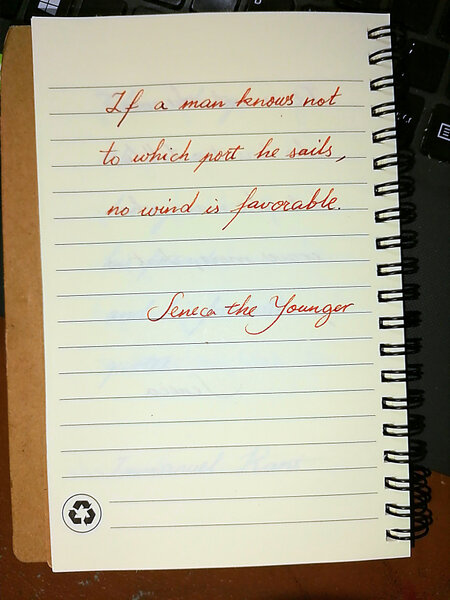 If a man knows not
to which port he sails,
no wind is favorable.
Seneca the Younger